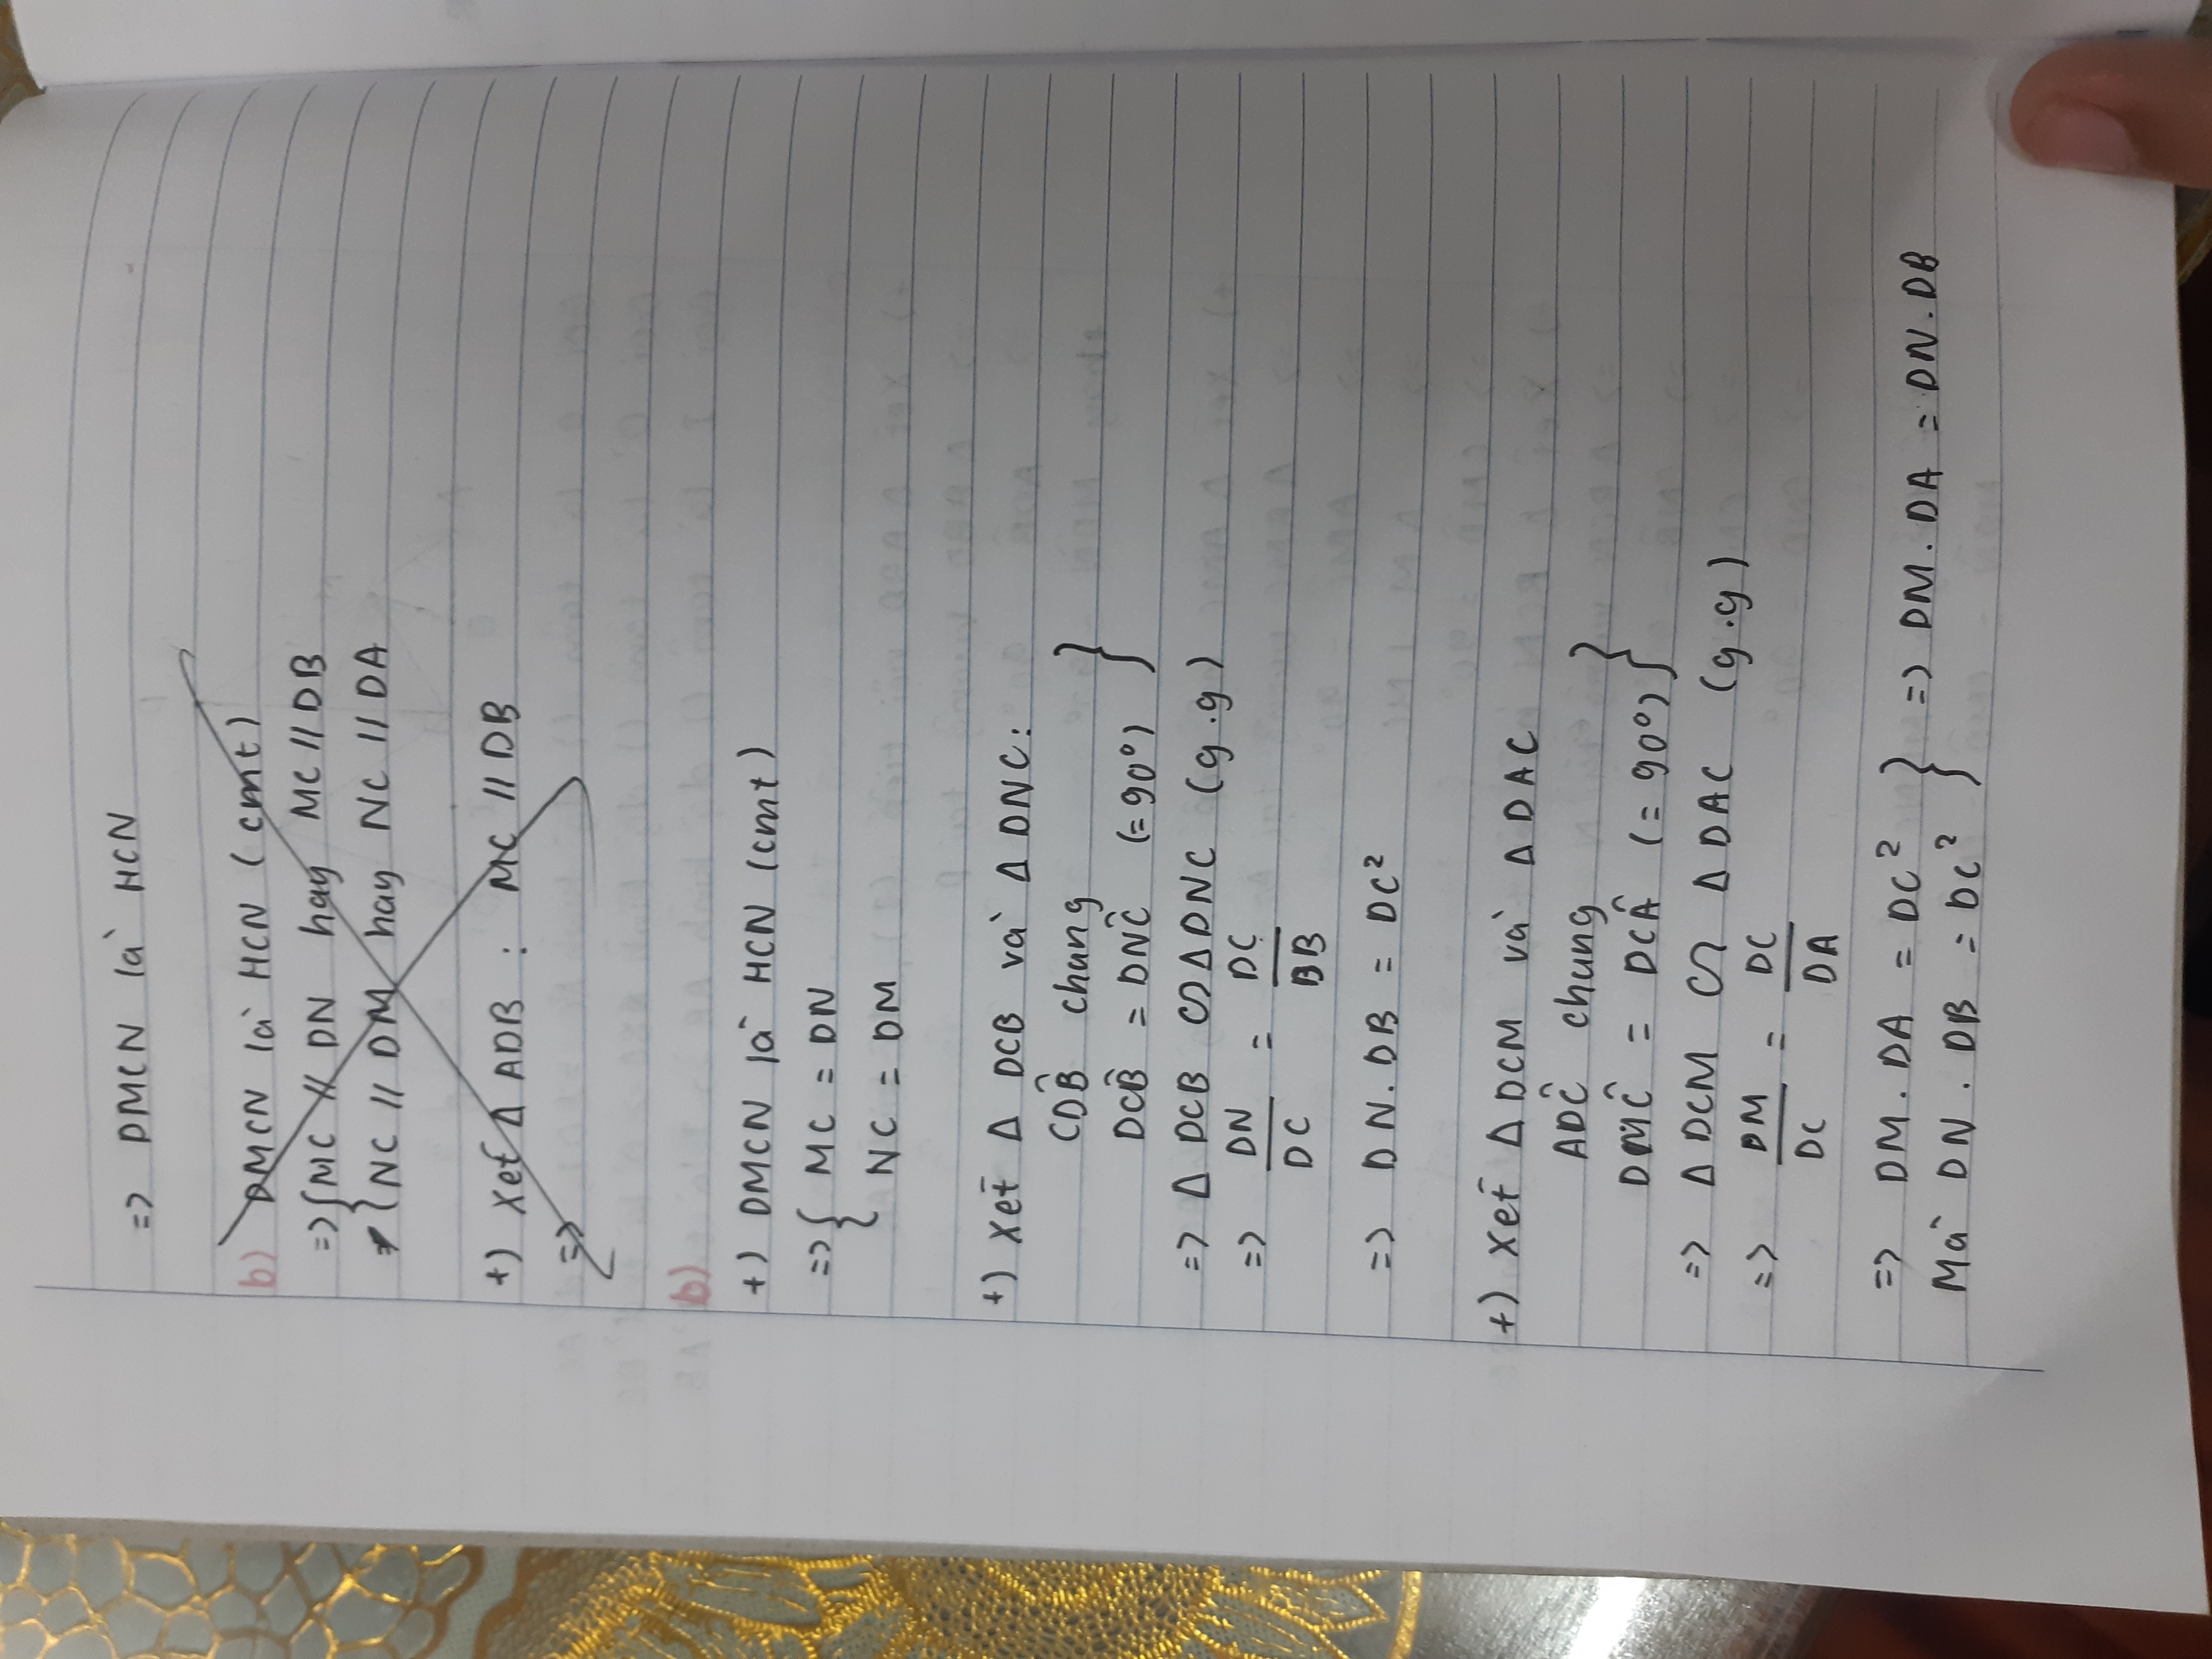 => DMCN là HCN
b) DMCN là HCN (cmt)
=> { MC // DN hay MC // DB
{ NC // DM hay NC // DA
+) Xét Δ ADB : MC // DB
=>
b)
+) DMCN là HCN (cmt)
=> { MC = DN
NC = DM
+) Xét Δ DCB và Δ DNC:
CDB̂ chung }
DCB̂ = DNĈ (= 90°)
=> Δ DCB ∽ Δ DNC (g.g)
=> DN/DC = DC/BB
=> DN. DB = DC²
+) Xét Δ DCM và Δ DAC
ADĈ chung }
DMĈ = DCÂ (= 90°)
=> Δ DCM ∽ Δ DAC (g.g)
=> DM/DC = DC/DA
=> DM. DA = DC² } => DM. DA = DN. DB
Mà DN . DB = DC²